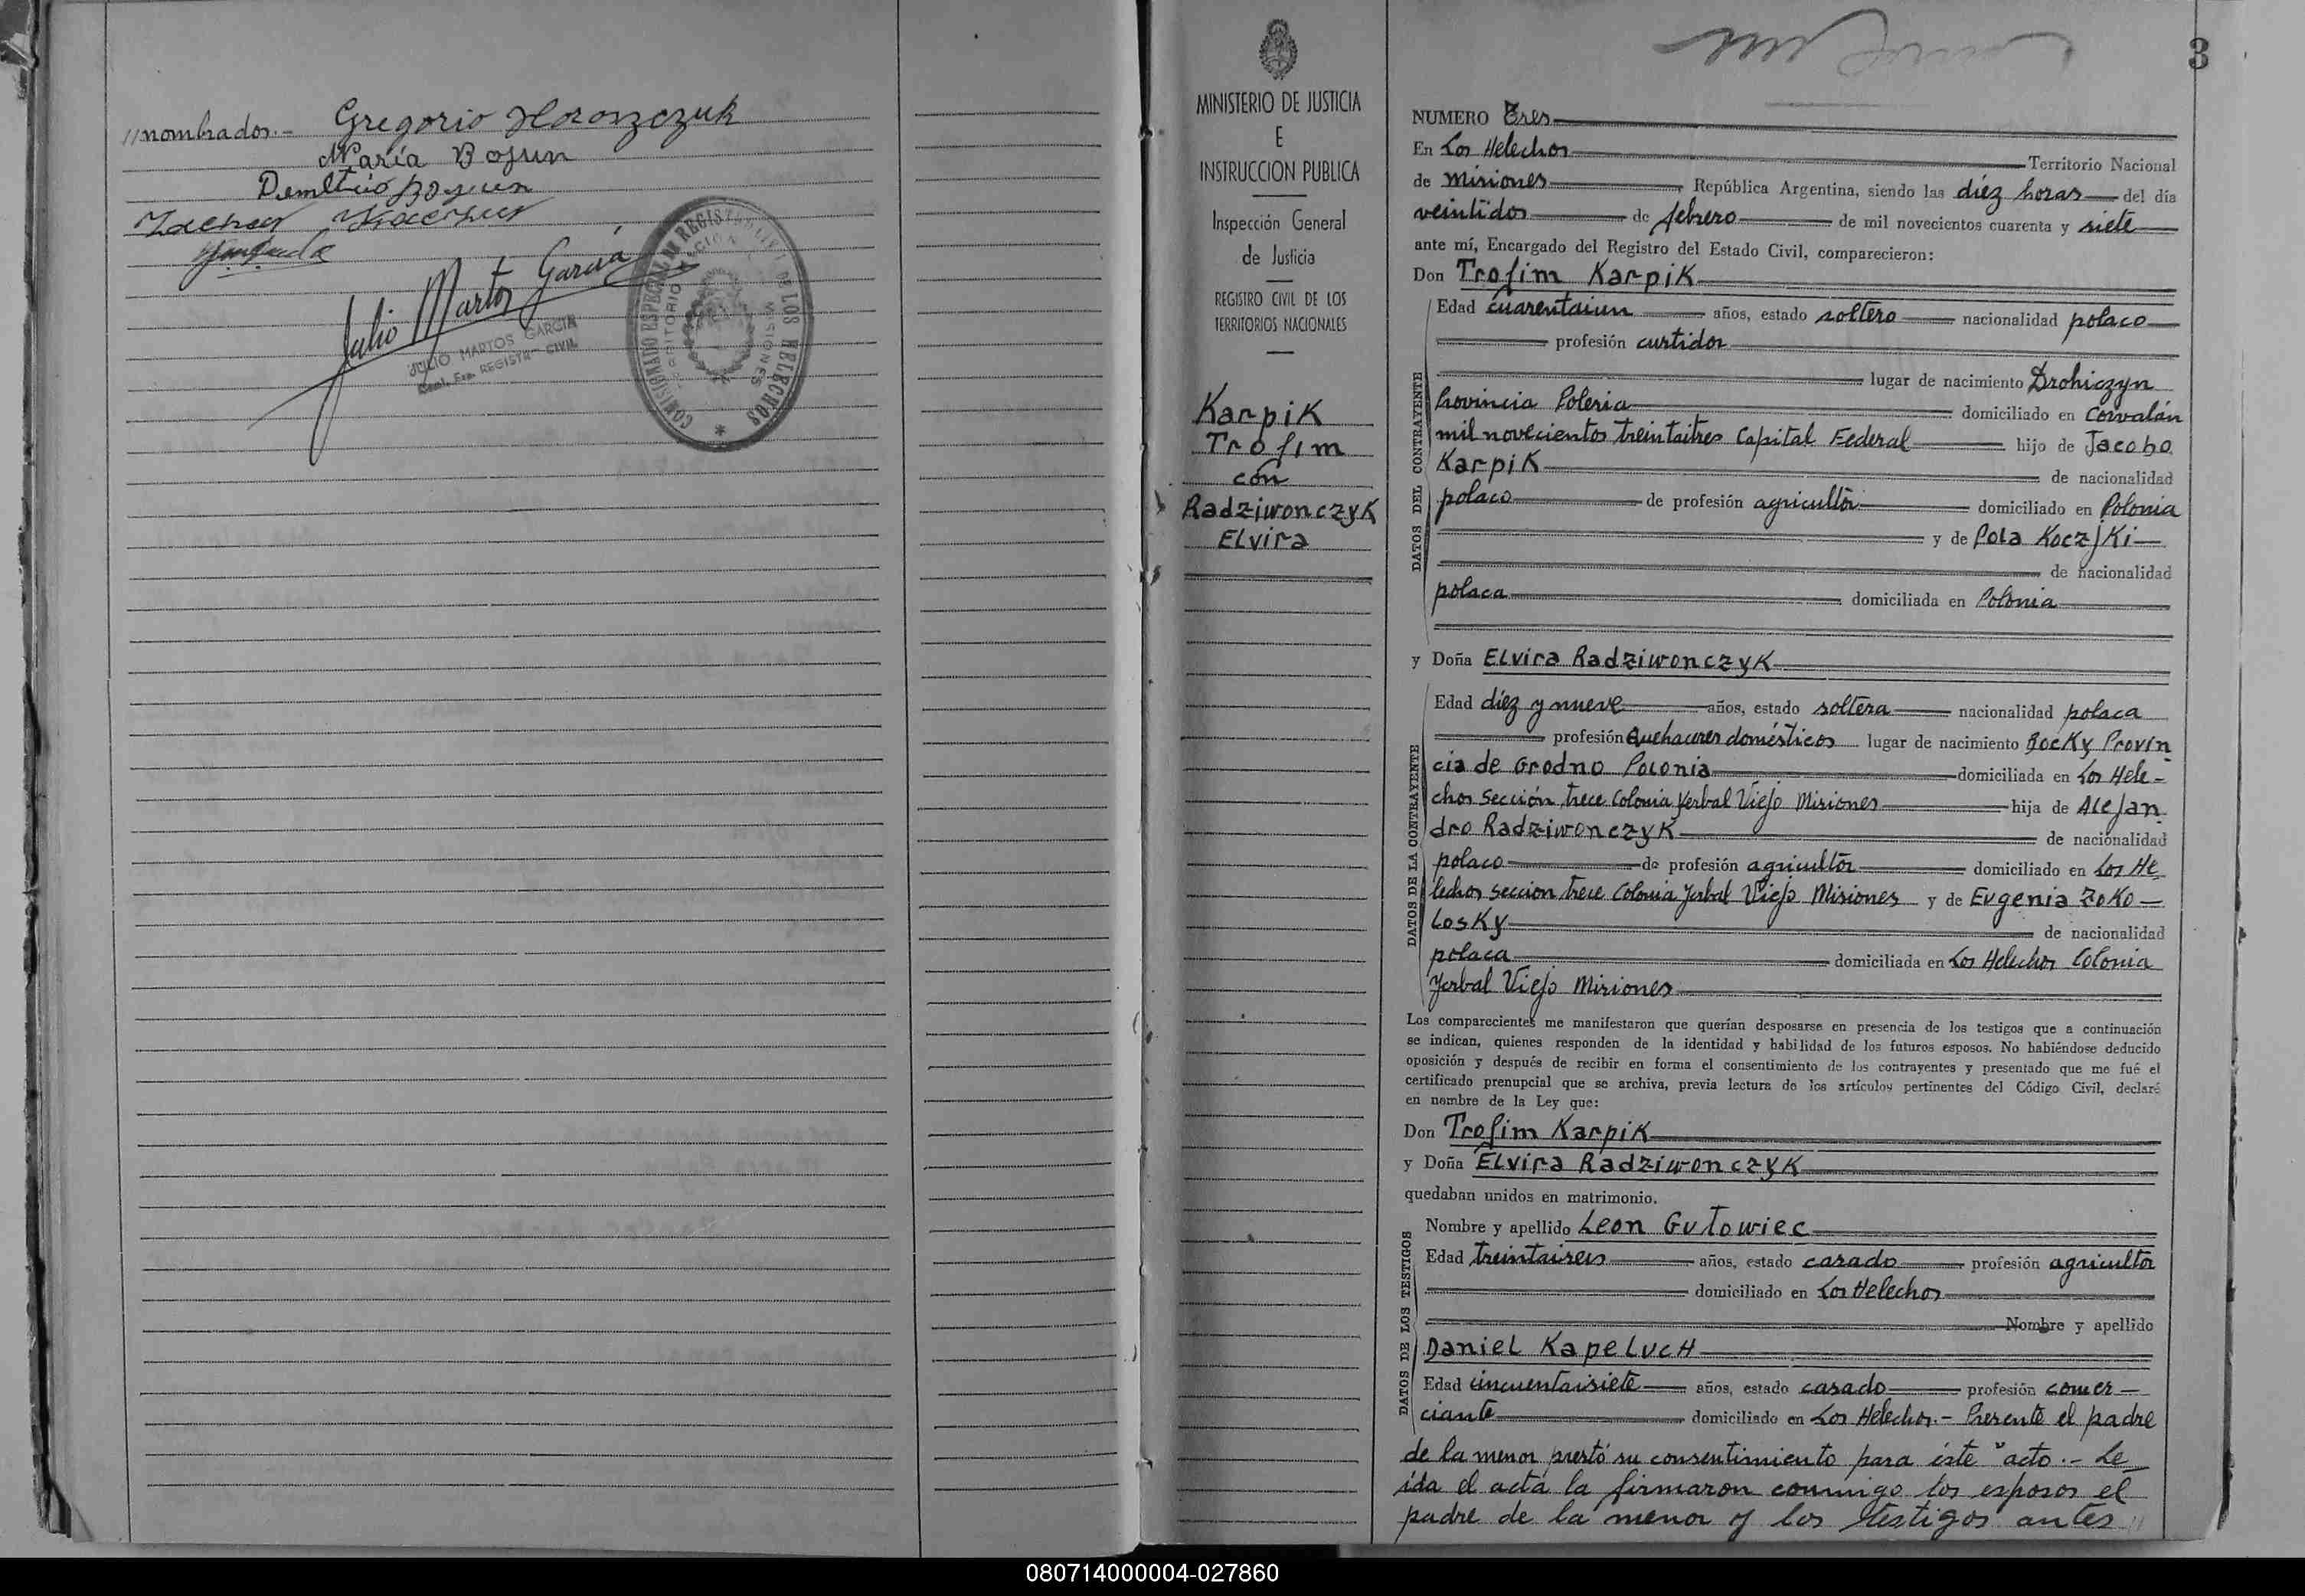 //nombrados.- Gregorio Horonzczuk
María Bojun
Demetrio Boyun
Julio Martos García
JULIO MARTOS GARCIA
REGISTRO CIVIL
COMISIONADO ESPECIAL DEL REGISTRO CIVIL DE LOS HELECHOS
TERRITORIO NACIONAL MISIONES
MINISTERIO DE JUSTICIA
E
INSTRUCCION PUBLICA
Inspección General
de Justicia
REGISTRO CIVIL DE LOS
TERRITORIOS NACIONALES
Karpik
Trofim
con
Radziwonczyk
Elvira
3
NUMERO Tres
En Los Helechos Territorio Nacional
de Misiones, República Argentina, siendo las diéz horas del día
veintidos de febrero de mil novecientos cuarenta y siete
ante mí, Encargado del Registro del Estado Civil, comparecieron:
Don Trofim Karpik
DATOS DEL CONTRAYENTE
Edad cuarentaiun años, estado soltero nacionalidad polaco
profesión curtidor
lugar de nacimiento Drohiczyn
Provincia Poleria domiciliado en Corvalán
mil novecientos treintaitres Capital Federal hijo de Jacobo
Karpik de nacionalidad
polaco de profesión agricultor domiciliado en Polonia
y de Pola Koczjki
de nacionalidad
polaca domiciliada en Polonia
y Doña Elvira Radziwonczyk
DATOS DE LA CONTRAYENTE
Edad diéz y nueve años, estado soltera nacionalidad polaca
profesión Quehaceres domésticos lugar de nacimiento Bocky Provin
cia de Grodno Polonia domiciliada en Los Hele-
chos Sección trece Colonia Yerbal Viejo Misiones hija de Alejan
dro Radziwonczyk de nacionalidad
polaco de profesión agricultor domiciliado en Los He
lechos seccion trece Colonia Yerbal Viejo Misiones y de Eugenia Zoko-
losky de nacionalidad
polaca domiciliada en Los Helechos Colonia
Yerbal Viejo Misiones
Los comparecientes me manifestaron que querían desposarse en presencia de los testigos que a continuación
se indican, quienes responden de la identidad y habilidad de los futuros esposos. No habiéndose deducido
oposición y después de recibir en forma el consentimiento de los contrayentes y presentado que me fué el
certificado prenupcial que se archiva, previa lectura de los artículos pertinentes del Código Civil, declaré
en nombre de la Ley que:
Don Trofim Karpik
y Doña Elvira Radziwonczyk
quedaban unidos en matrimonio.
DATOS DE LOS TESTIGOS
Nombre y apellido Leon Gutowiec
Edad treintaiseis años, estado casado profesión agricultor
domiciliado en Los Helechos
Nombre y apellido
Daniel Kapeluch
Edad cincuentaisiete años, estado casado profesión comer-
ciante domiciliado en Los Helechos.- Presente el padre
de la menor prestó su consentimiento para éste acto.- Le
ida el acta la firmaron conmigo los esposos el
padre de la menor y los testigos antes //
080714000004-027860